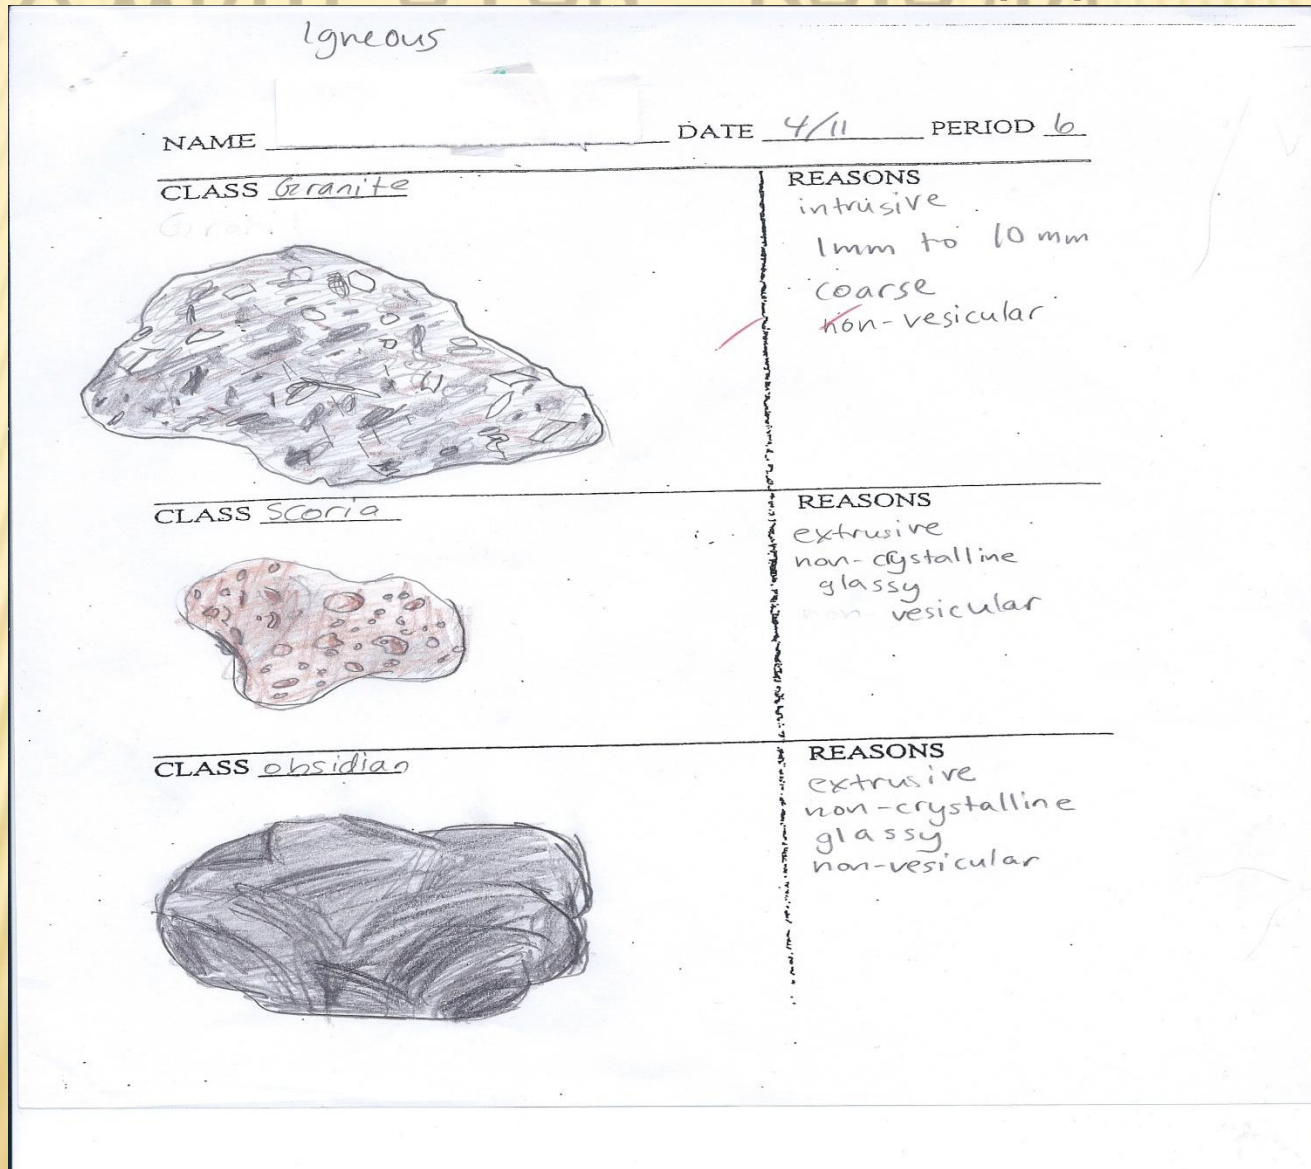 Igneous
NAME DATE 4/11 PERIOD 6
CLASS Granite
REASONS
intrusive
1mm to 10 mm
coarse
non-vesicular
CLASS Scoria
REASONS
extrusive
non-crystalline
glassy
vesicular
CLASS obsidian
REASONS
extrusive
non-crystalline
glassy
non-vesicular